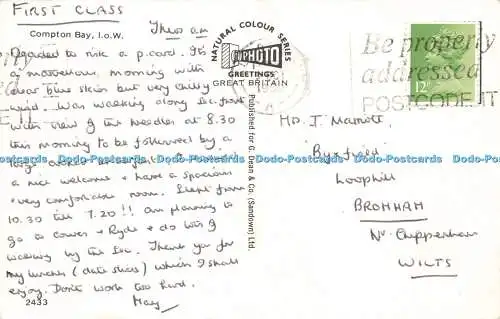 FIRST CLASS
Compton Bay, I.o.W.
Thurs am
Regarded to risk a p.card. It's
a marvellous morning with
clear blue skies but very chilly
wind. Was walking along sea front
with view of the Needles at 8.30
this morning to be followed by a
large cooked breakfast
a nice welcome & have a spacious
& very comfortable room. Slept from
10.30 till 7.20!! Am planning to
go to Cowes & Ryde & do lots of
walking by the sea. Thank you for
my lunches (date slices) which I shall
enjoy. Don't work too hard.
Mary
2433
NATURAL COLOUR SERIES
PHOTO
GREETINGS
GREAT BRITAIN
Published for G. Dean & Co. (Sandown) Ltd.
Be properly
addressed
POSTCODE IT
12
Mr. J. Marriott,
Byfield
Loophill
BROMHAM
Nr. Chippenham
WILTS
www.Postcards-World-Downunder.com